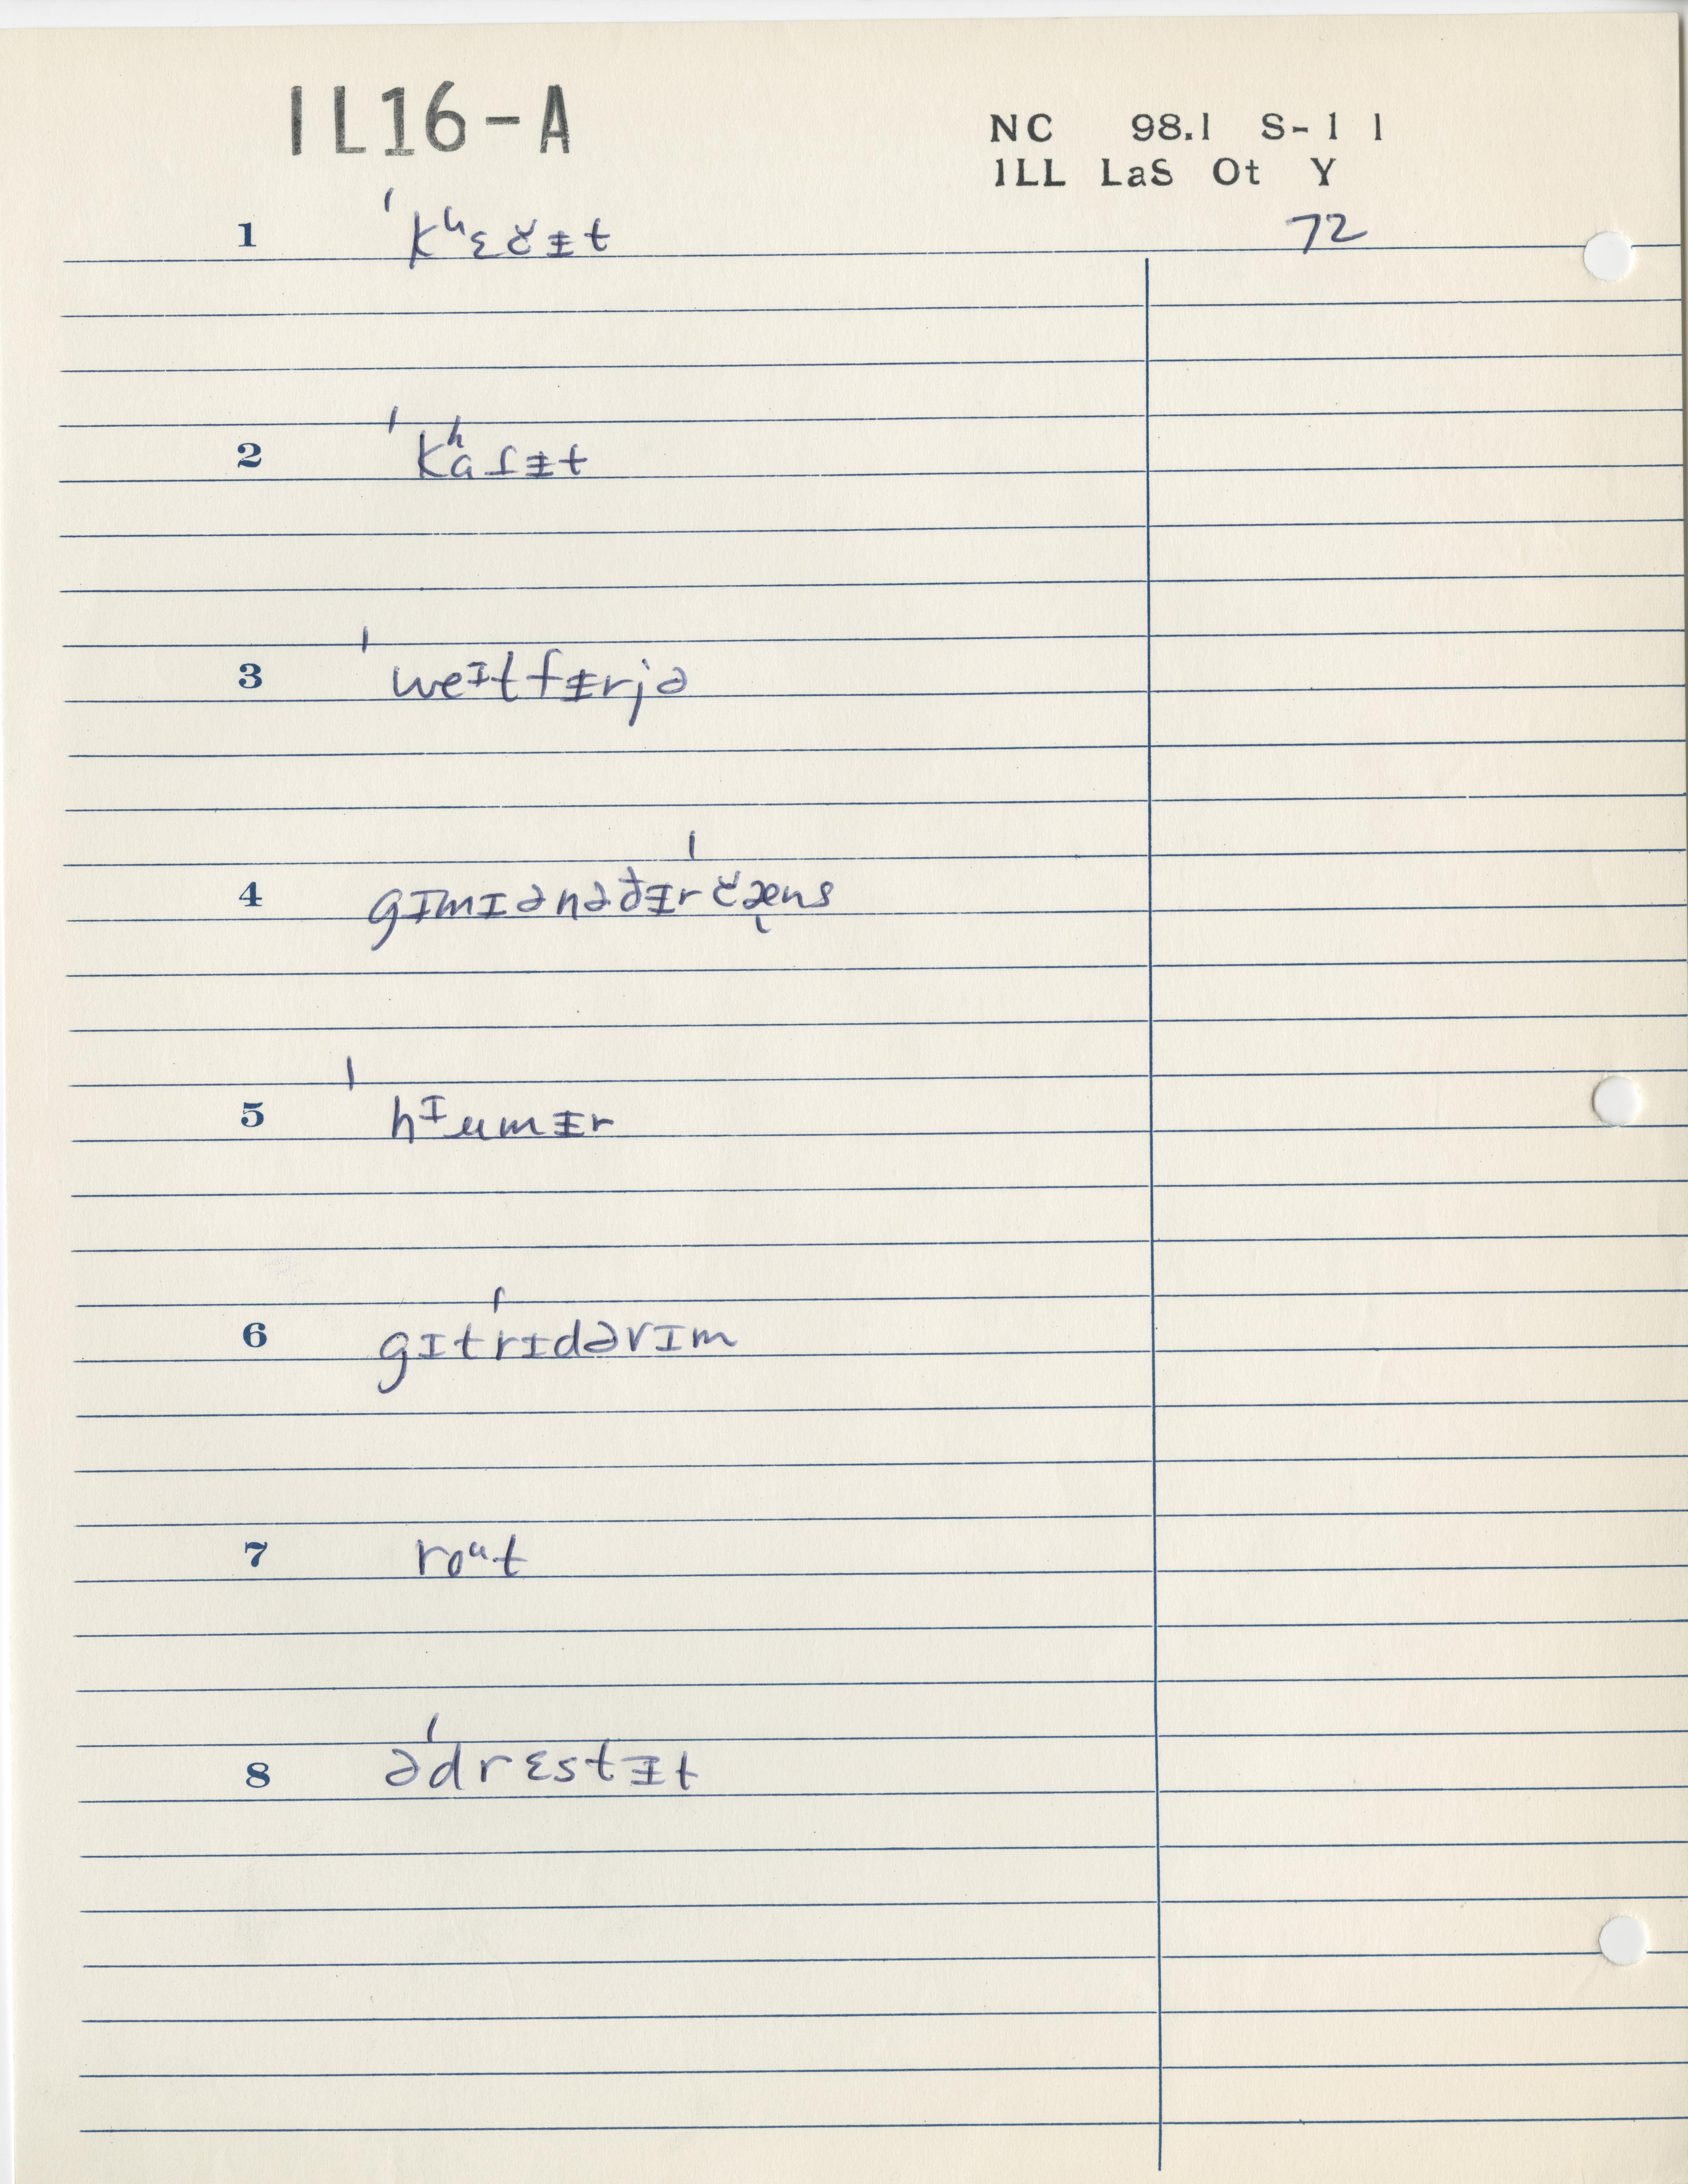 IL16-A
NC 98.1 S-1 1
ILL LaS Ot Y
72
1 ˈkʰɛčɨt
2 ˈkʰɑfɨt
3 ˈweᴵtfɨrjə
4 gɪmɪənəðɨrˈčæ̨ns
5 ˈhᴵumɨr
6 gɪtˈrɪdəvɪm
7 roᵘt
8 əˈdrɛstɨt